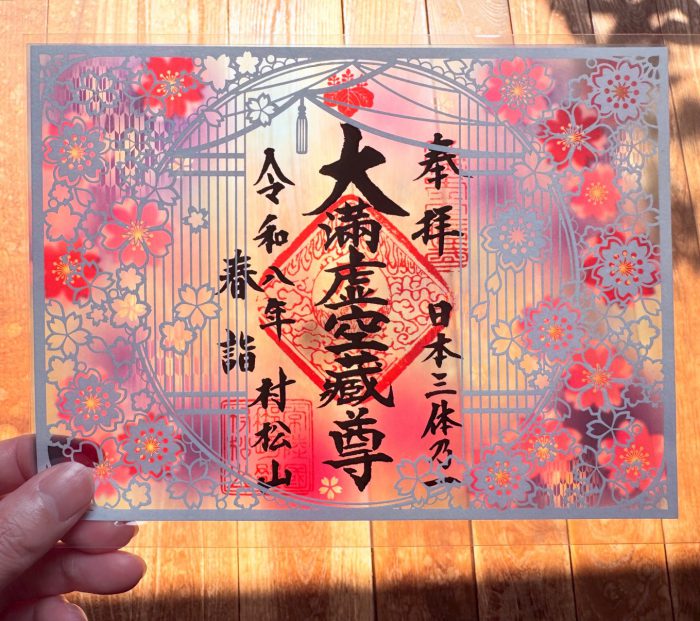 奉拝 日本三体乃一
大満虚空藏尊
令和八年 村松山
春詣